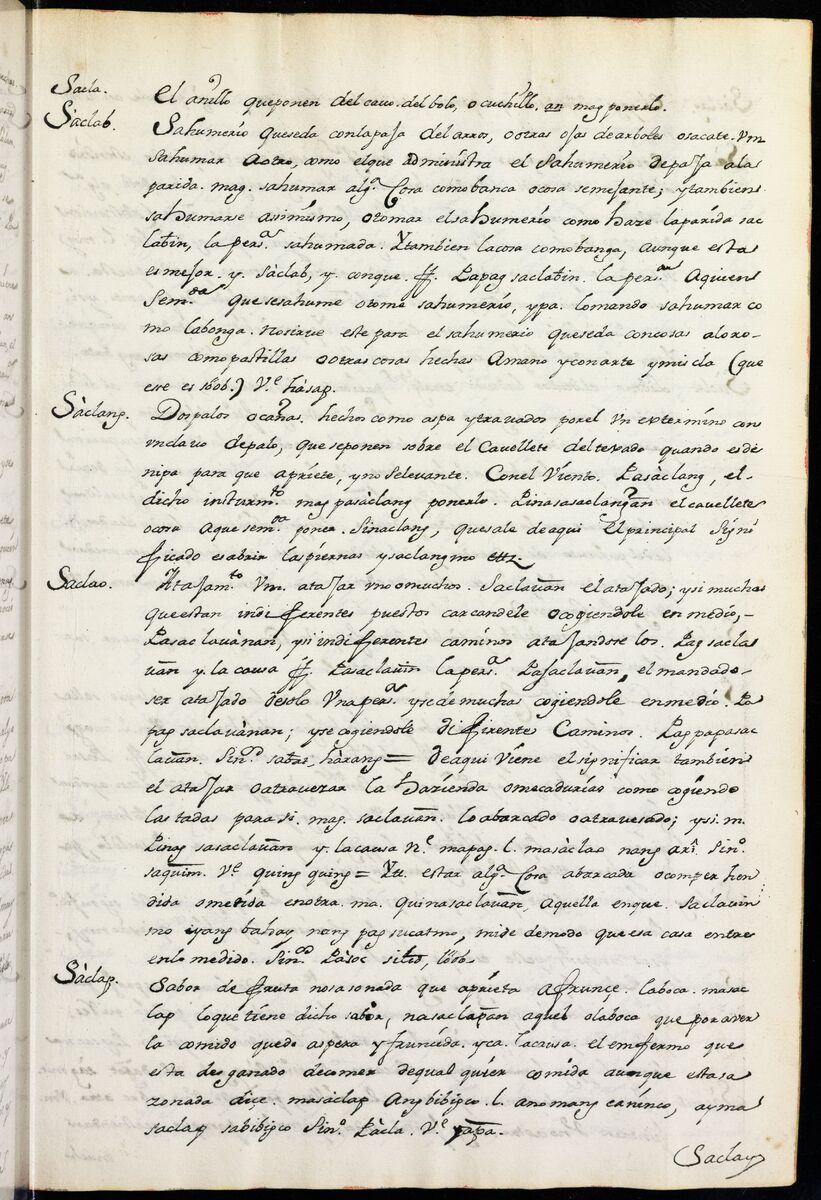 Sacla. El anillo queponen del cauo. del bolo, o cuchillo. an mag ponerlo.
Sàclab. Sahumerio queseda conlapaja del arros, o otras ojas de arboles o sacate. Vm
sahumar a otro, como elque administra el sahumerio depaja ala
parida. mag. sahumar algª. Cosa comobanca o cosa semejante; ytambien
sahumarse assimismo, otomar elsahumerio como haze laparida sac
labin, la persª. sahumada. Ytambien lacosa comobanga, aunque esta
esmejor. y. sàclab, y. conque. Ipapag saclabin. la persna. Aquien
Semda. que sesahume otome sahumerio, ypa. lomando sahumar co
mo labonga. nosirue este para el sahumerio queseda concosas aloro-
sas comopastillas o otras cosas hechas Amano yconarte ymiscla (que
ese es ) Ve. hàsap.
Sàclang. Dospalos ocañas. hechos como aspa ytrauados porel Vn extermino con
vnclauo depalo, que seponen sobre el Cauellete deltexado quando esde
nipa para que apriete, yno seleuante. Conel Viento. Pasàclang, el-
dicho insturmto. mag pasàclang ponerlo. Pinasasaclangan el cauellete
ocosa aque semda. poner. Sinaclang, quesale deaqui El principal Signi
ficado esabrir laspiernas ysaclangmo
Saclao. Atajamto. Vm. atajar vno omuchos. Saclauan el atajado; ysi muchos
queestan indiferentes puestos carcandole cogiendole en medio,-
Pasaclauànan, ysi indiferentes caminos atajandose los. Pag saclas
uan y. la causa Pasaclauin lapersª. Pasaclauan, el mandado-
ser atajado desolo Vnapersª. ysidemuchas cogiendole enmedio. Pa
pag saclauànan; yse cogiendole diferente Caminos. Pagpapasac
lauan. Sino. sabat, hàrang = deaqui viene elsignificar tambien
el atajar oatrauezar la hazienda omercadurias como cogiendo
las todas para si. mag. saclauan. lo abarcado oatrauesado; ysi. m.
Pinag sasaclauan y. lacausa Ne. mapag. l. masàclao nang ari. Sino.
saquim. Ve. quing quing = Yu. estar algª. Cosa abarcada ocomprehen
dida ometida enotra. ma. quinasaclauan, aquella enque. saclauin
mo iyang bahay nang pag sucatmo, mide demodo que esa casa entre
enlo medido. Sino. Pasoc
Sàclap. Sabor de fruta nosasonada que aprieta afrunçe. laboca. masac
lap loque tiene dicho sabor, nasaclapan aquel olaboca que porauer
la comido quedo aspera yfruncida. yca. lacausa. el emfermo que
esta desganado decomer dequal quier comida aunque estasa
zonada dice. masàclap ang bibigco. l. anomang caninco, ayma
saclap sabibigco Sino. Pàcla. Ve. papa.
Saclay